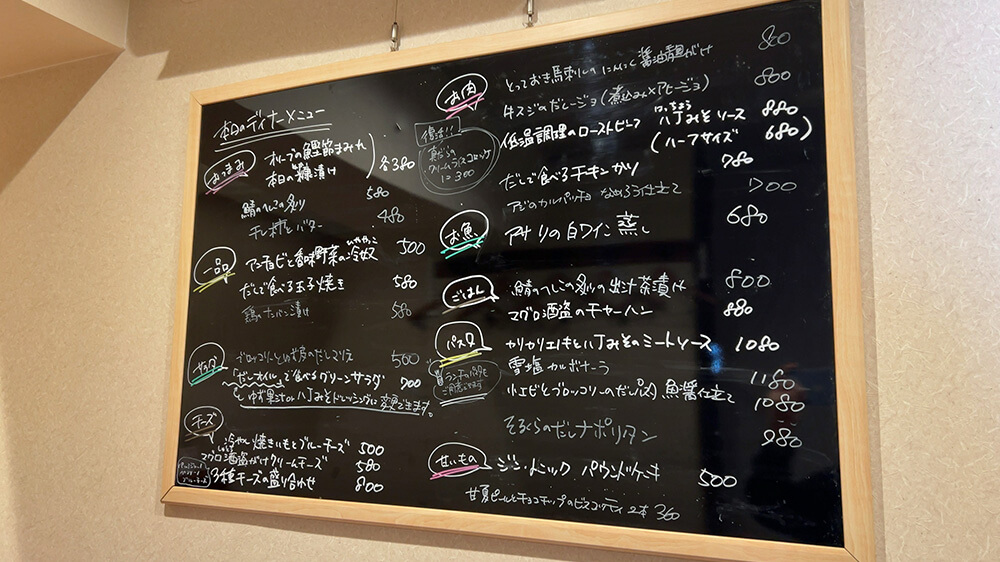 本日のディナーメニュー
おつまみ
オリーブの鰹節まみれ
本日の糠漬け
各380
鯖のへしこの炙り 580
干し柿とバター 480
一品
アンチョビと香味野菜の冷奴 500
ひややっこ
だしで食べる玉子焼き 580
鶏ナンバン漬け 580
サラダ
ブロッコリーと
のだしマリネ 500
「だしオイル」で食べるグリーンサラダ 700
ドレッシングに変更できます。
チーズ
冷やし焼きいもとブルーチーズ 500
マグロ酒盗がけクリームチーズ 580
3種チーズの盛り合わせ 800
お肉
とっておき馬刺しのにんにく醤油麹がけ 800
牛スジのだしージョ(煮込み×アヒージョ) 800
低温調理のローストビーフ 八丁みそソース 880
はっちょう
(ハーフサイズ 680)
だしで食べるチキンかつ 780
復活!!
300
お魚
アジのカルパッチョ なめろう仕立て 700
アサリの白ワイン蒸し 680
ごはん
鯖のへしこの炙りの出汁茶漬け 800
マグロ酒盗のチャーハン 880
パスタ
カリカリエリンギと八丁みそのミートソース 1080
雪塩カルボナーラ 1180
小エビとブロッコリーのだしパスタ 魚醤仕立て 1080
そぼくらのだしナポリタン 980
ランチのパスタも
ご用意できます
甘いもの
ジン・トニック パウンドケーキ 500
甘夏ピールとチョコチップのビスコッティ 2本 360